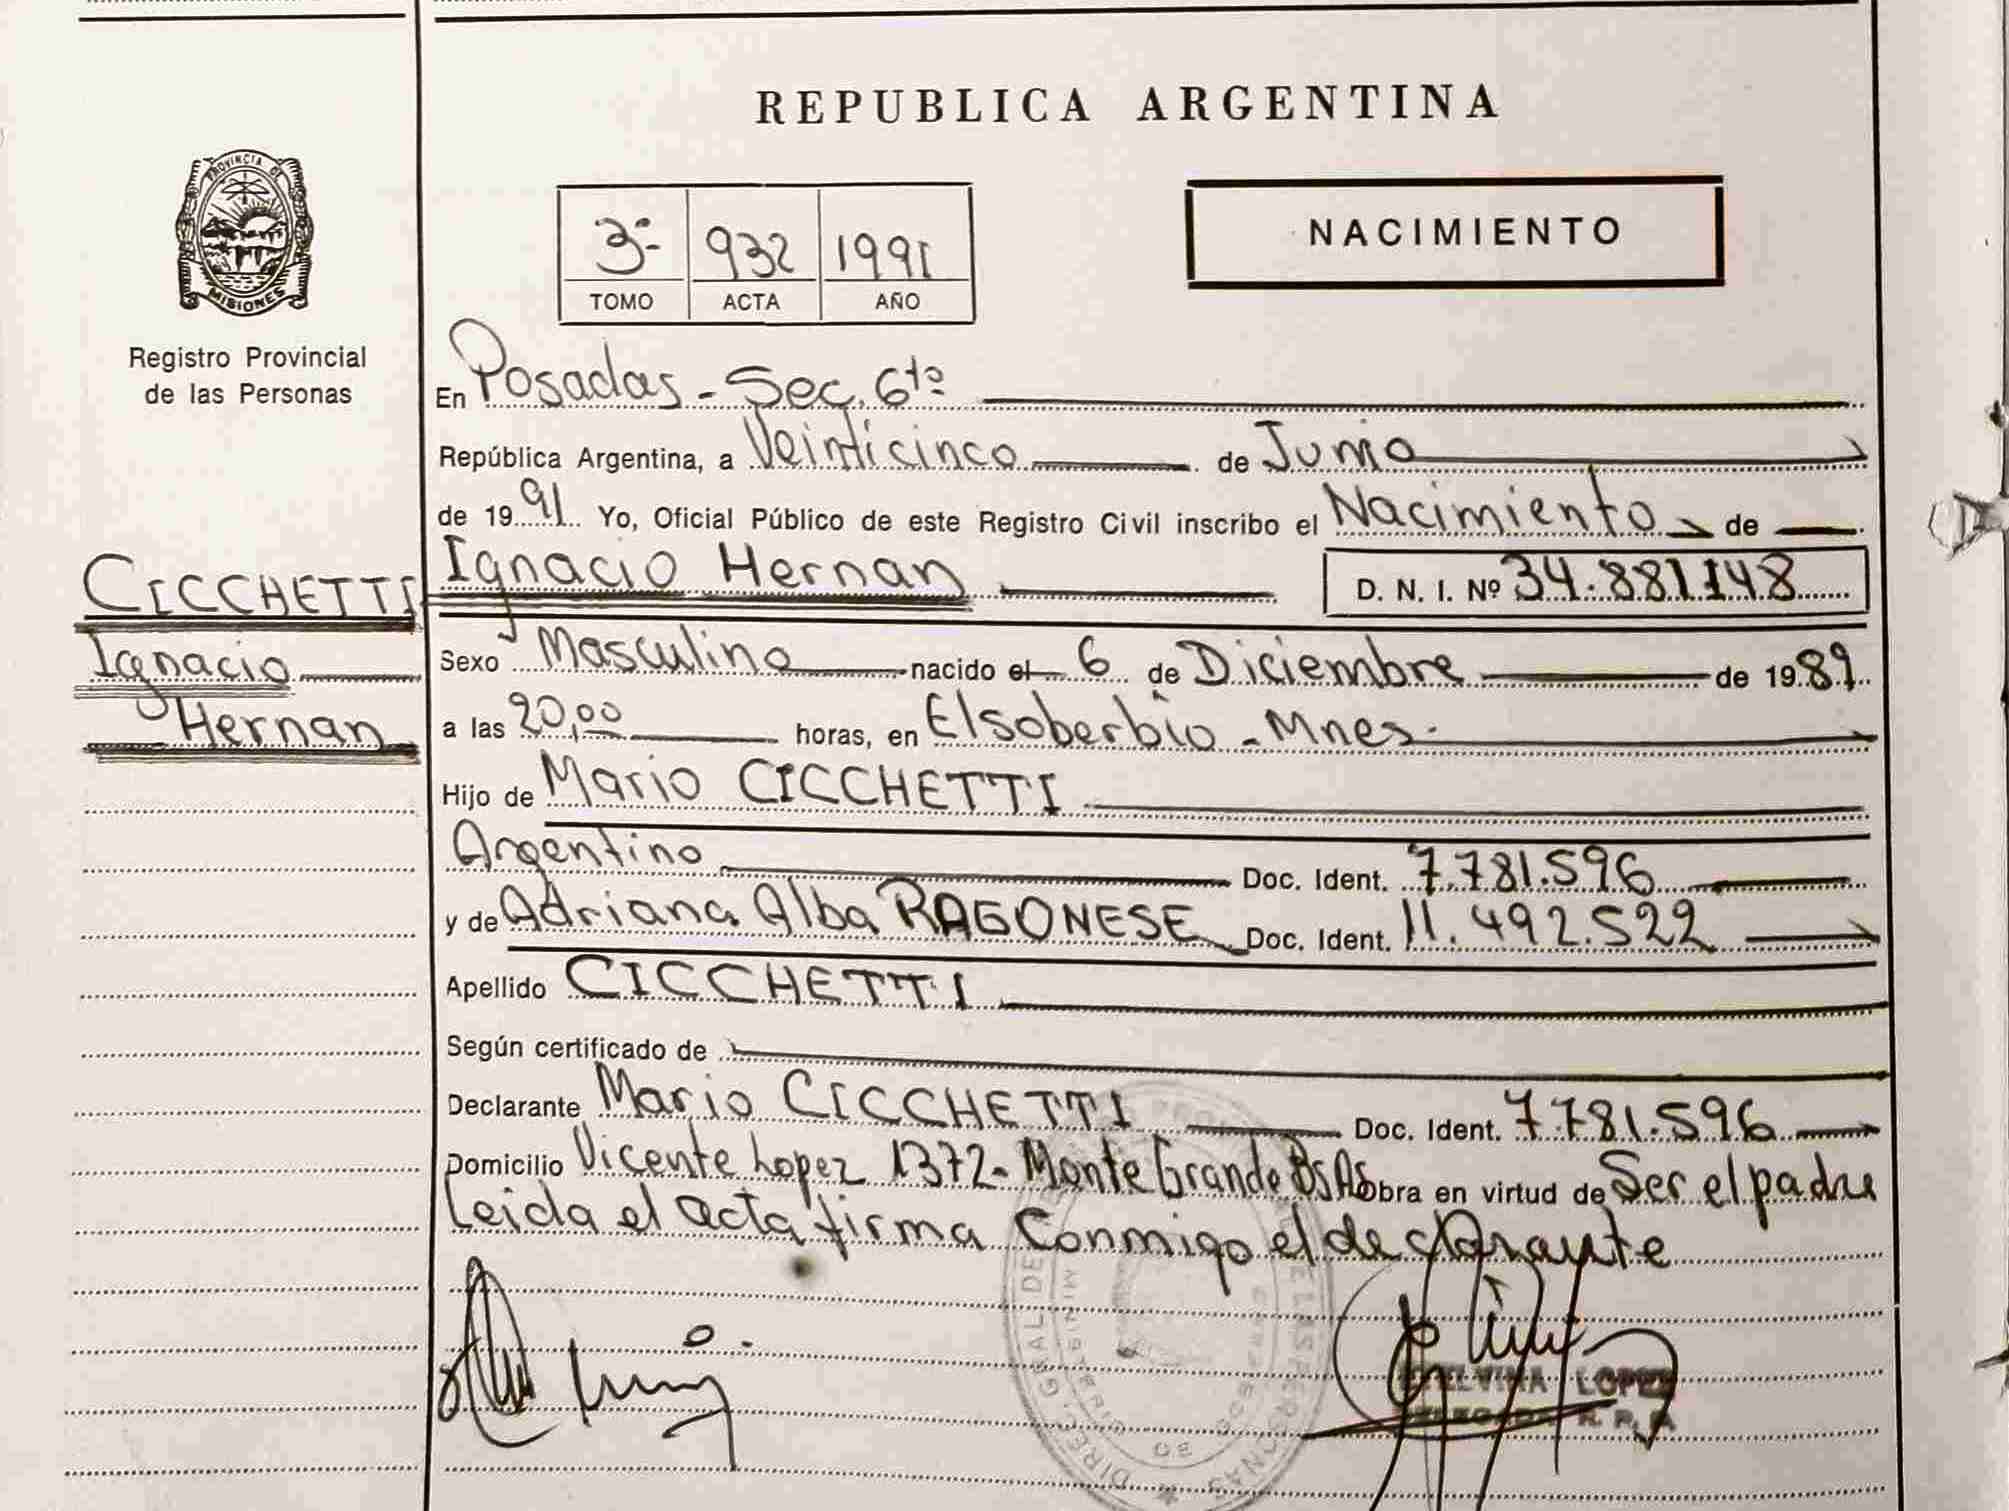 REPUBLICA ARGENTINA
PROVINCIA DE
MISIONES
Registro Provincial
de las Personas
3º 932 1991
TOMO ACTA AÑO
NACIMIENTO
En Posadas - Sec. 6ta
República Argentina, a Veinticinco de Junio
de 1991 Yo, Oficial Público de este Registro Civil inscribo el Nacimiento de
CICCHETTI
Ignacio
Hernan
Ignacio Hernan D. N. I. Nº 34.881148
Sexo Masculino nacido el 6 de Diciembre de 1989
a las 20,00 horas, en Elsoberbio - Mnes.
Hijo de Mario CICCHETTI
Argentino Doc. Ident. 7.781.596
y de Adriana Alba RAGONESE Doc. Ident. 11.492.522
Apellido CICCHETTI
Según certificado de
Declarante Mario CICCHETTI Doc. Ident. 7.781.596
Domicilio Vicente Lopez 1372 - Monte Grande Bs As obra en virtud de Ser el padre
Leida el acta firma Conmigo el declarante
LOPEZ